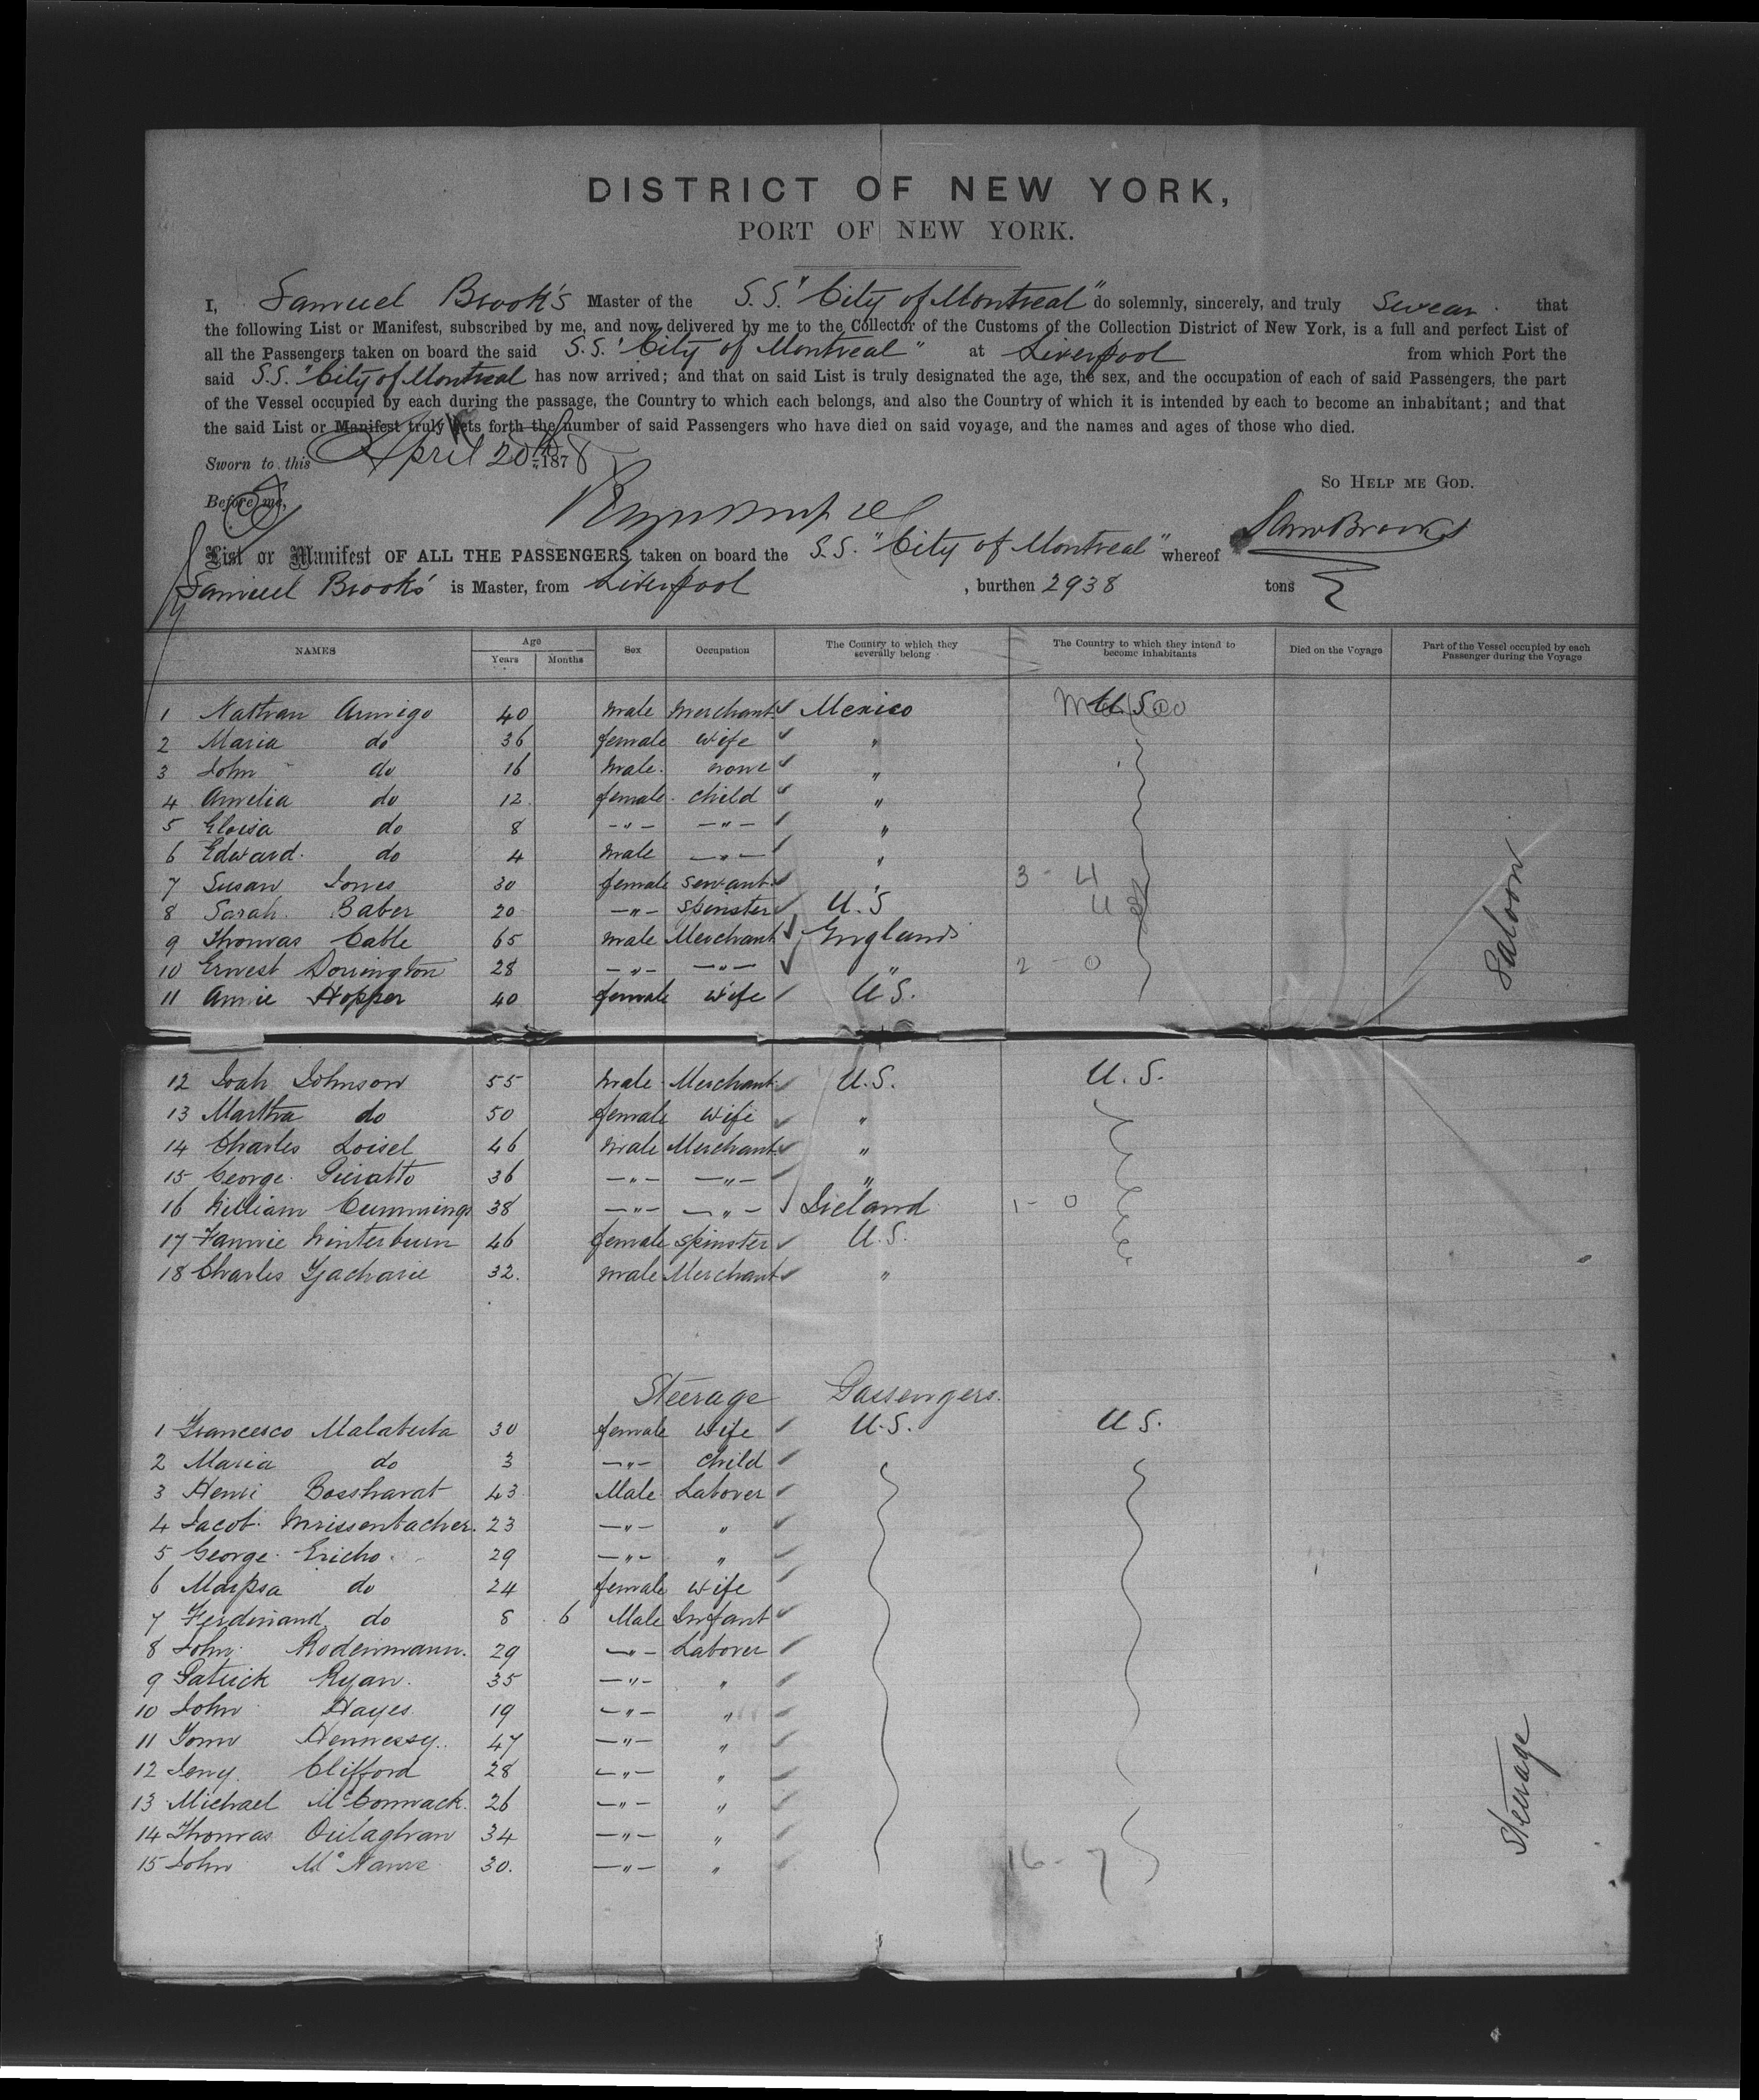 DISTRICT OF NEW YORK,
PORT OF NEW YORK.
I, Samuel Brook's Master of the S.S. "City of Montreal" do solemnly, sincerely, and truly Swear that
the following List or Manifest, subscribed by me, and now delivered by me to the Collector of the Customs of the Collection District of New York, is a full and perfect List of
all the Passengers taken on board the said S.S. "City of Montreal" at Liverpool from which Port the
said S.S. "City of Montreal has now arrived; and that on said List is truly designated the age, the sex, and the occupation of each of said Passengers, the part
of the Vessel occupied by each during the passage, the Country to which each belongs, and also the Country of which it is intended by each to become an inhabitant; and that
the said List or Manifest truly sets forth the number of said Passengers who have died on said voyage, and the names and ages of those who died.
Sworn to this April 20th 1878
So Help me God.
Before me,
Sam Brooks
List or Manifest OF ALL THE PASSENGERS taken on board the S.S. "City of Montreal" whereof
Samuel Brooks' is Master, from Liverpool , burthen 2938 tons
NAMES Age Years Months Sex Occupation The Country to which they severally belong The Country to which they intend to become inhabitants Died on the Voyage Part of the Vessel occupied by each Passenger during the Voyage
1 Nathan Armigo 40 male Merchant Mexico U.S. Mexico
2 Maria do 36 female wife "
3 John do 16 male none "
4 Amelia do 12 female child "
5 Eloisa do 8 —"— —"— "
6 Edward do 4 male —"— "
7 Susan Jones 30 female servant " 3 - 4
8 Sarah Baber 20 —"— spinster U.S U S
9 Thomas Cable 65 male Merchant England
10 Ernest Dorrington 28 —"— —"— " 2 - 0
11 Annie Hopper 40 female wife U.S.
Saloon
12 Joah Johnson 55 male Merchant U.S. U.S.
13 Martha do 50 female wife "
14 Charles Loisel 46 male Merchant "
15 George 36 —"— —"— "
16 William Cummings 38 —"— —"— Ireland 1 - 0
17 Fannie Winterburn 46 female spinster U.S.
18 Charles Zacharie 32. male Merchant "
Steerage Passengers.
1 Francesco Malatesta 30 female wife U.S. U S.
2 Maria do 3 —"— child
3 Henri Bossharat 43 Male Laborer
4 Jacob Mrissenbacher. 23 —"— "
5 George Ericho 29 —"— "
6 Marpsa do 24 female wife
7 Ferdinand do 8 6 Male Infant
8 John Rodenmann. 29 —"— Laborer
9 Patrick Ryan. 35 —"— "
10 John Hayes 19 —"— "
11 Tom Hennessy.. 47 —"— "
12 Jerry Clifford 28 —"— "
13 Michael McCormack. 26 —"— "
14 Thomas Oulaghan 34 —"— "
15 John Mc Name 30. —"— " 16 - 7
Steerage